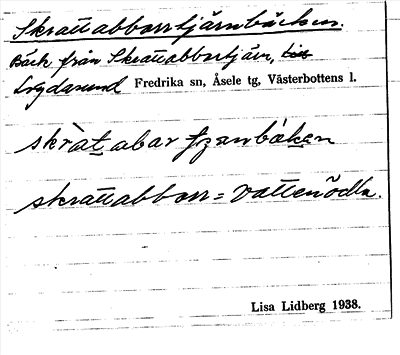 Skrattabborrtjärnbäcken.
Bäck från Skrattabborrtjärn, till
Lögdasund Fredrika sn, Åsele tg, Västerbottens l.
skrattabborr = vattenödla.
Lisa Lidberg 1938.